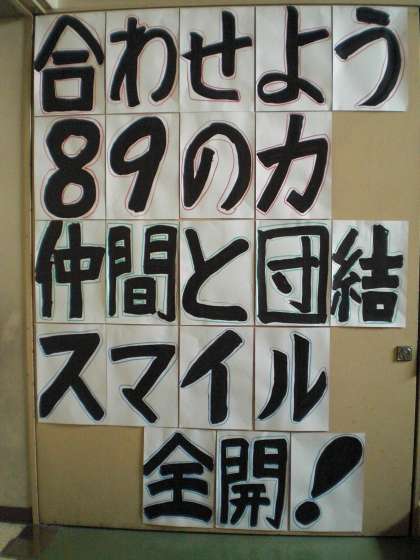 合わせよう
89の力
仲間と団結
スマイル
全開！